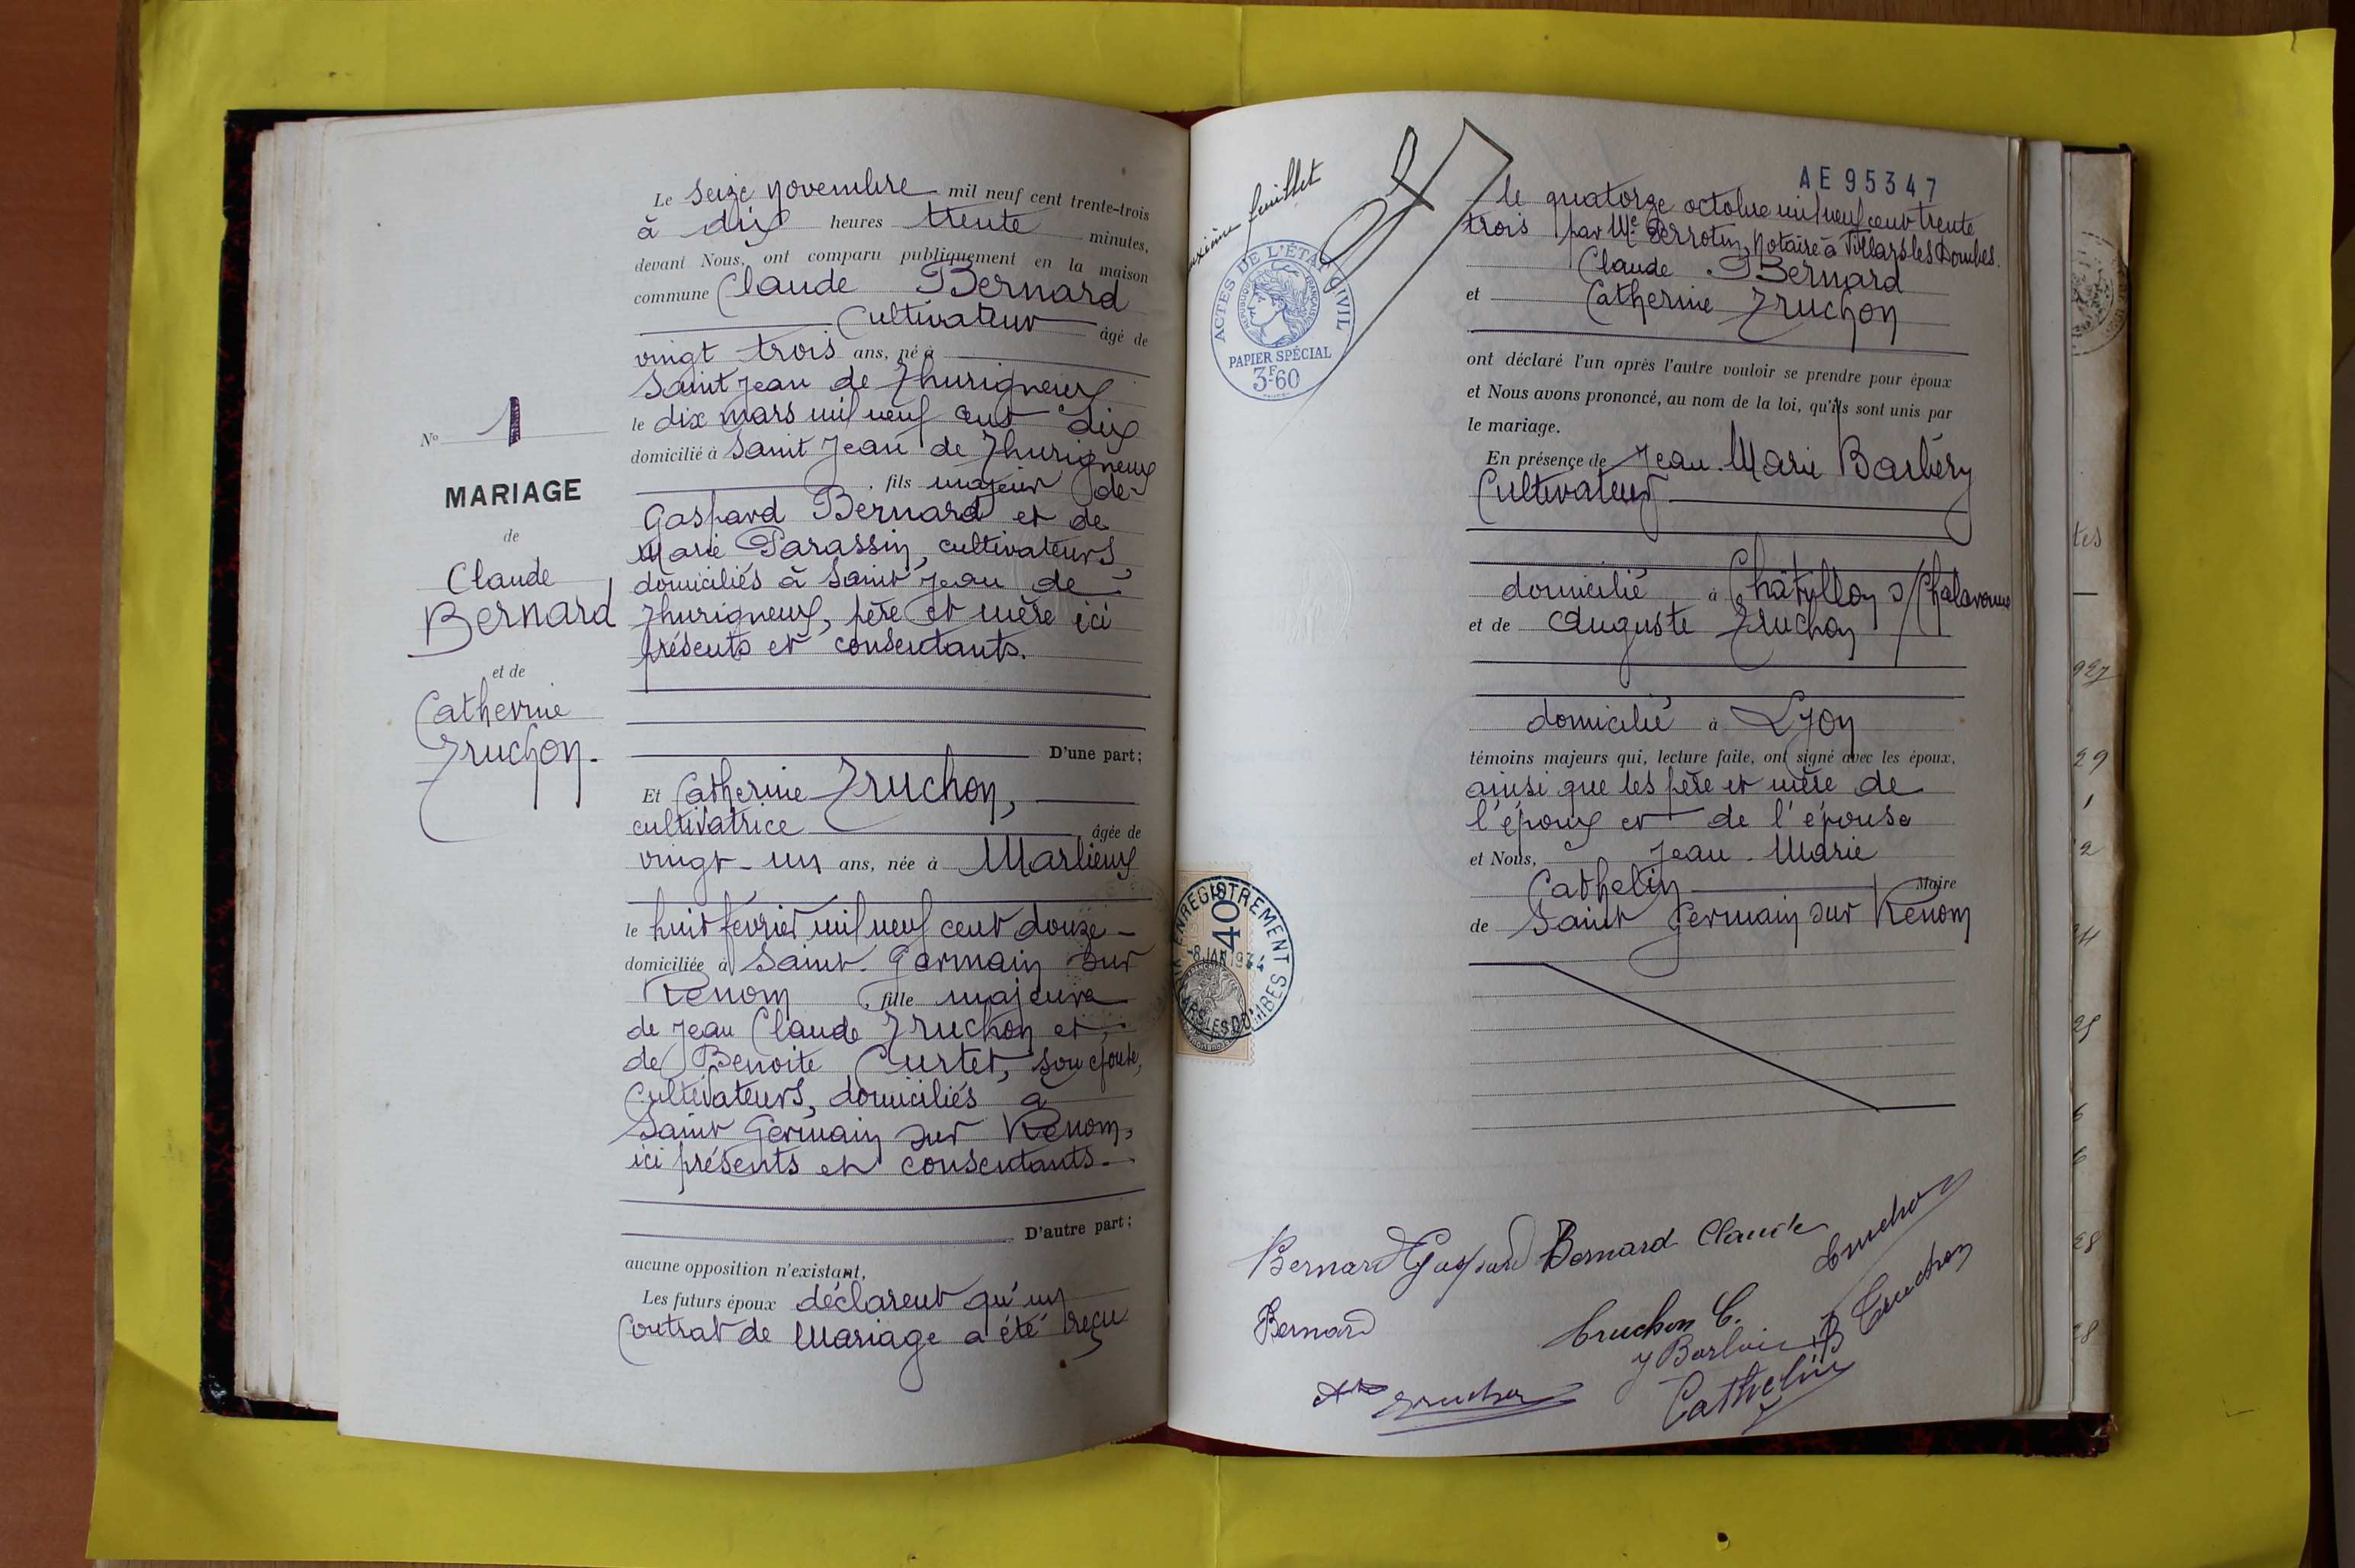 Le seize novembre mil neuf cent trente-trois
à dix heures trente minutes,
devant Nous, ont comparu publiquement en la maison
commune Claude Bernard
Cultivateur âgé de
vingt trois ans, né à
Saint Jean de Thurigneux
le dix mars mil neuf cent dix
domicilié à Saint Jean de Thurigneux
fils majeur de
Gaspard Bernard et de
Marie Parassin, cultivateurs,
domiciliés à Saint Jean de
Thurigneux, père et mère ici
présents et consentants.
D'une part;
Nº 1
MARIAGE
de
Claude
Bernard
et de
Catherine
Truchon.
Et Catherine Truchon,
cultivatrice âgée de
vingt-un ans, née à Marlieux
le huit février mil neuf cent douze
domiciliée à Saint Germain sur
Renom fille majeure
de Jean Claude Truchon et
de Benoite Curtet, son épouse,
Cultivateurs, domiciliés à
Saint Germain sur Renom,
ici présents et consentants.
D'autre part;
aucune opposition n'existant,
Les futurs époux déclarent qu'un
Contrat de Mariage a été reçu
feuillet
AE 95347
ACTES DE L'ÉTAT CIVIL
RÉPUBLIQUE FRANÇAISE
PAPIER SPÉCIAL
3F-60
le quatorze octobre mil neuf cent trente
trois par Me Perrotin, Notaire à Villars les Dombes.
Claude Bernard
et Catherine Truchon
ont déclaré l'un après l'autre vouloir se prendre pour époux
et Nous avons prononcé, au nom de la loi, qu'ils sont unis par
le mariage.
En présence de Jean-Marie Barbéry
Cultivateur
domicilié à Châtillon s/Chalaronne
et de Auguste Truchon
domicilié à Lyon
témoins majeurs qui, lecture faite, ont signé avec les époux,
ainsi que les père et mère de
l'époux et de l'épouse
et Nous, Jean-Marie
Cathelin Maire
de Saint Germain sur Renom
ENREGISTREMENT
40
8 JAN 1934
LES DOMBES
Bernard Gaspard Bernard Claude Truchon
Bernard
Truchon C.
Truchon
Truchon
Cathelin
tes
927
29
1
2
24
25
6
6
28
28